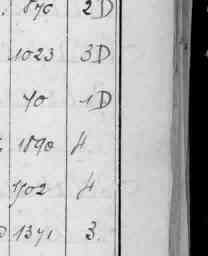 876 2D
1023 3D
70 1D
1890 4
1702 4
1371 3